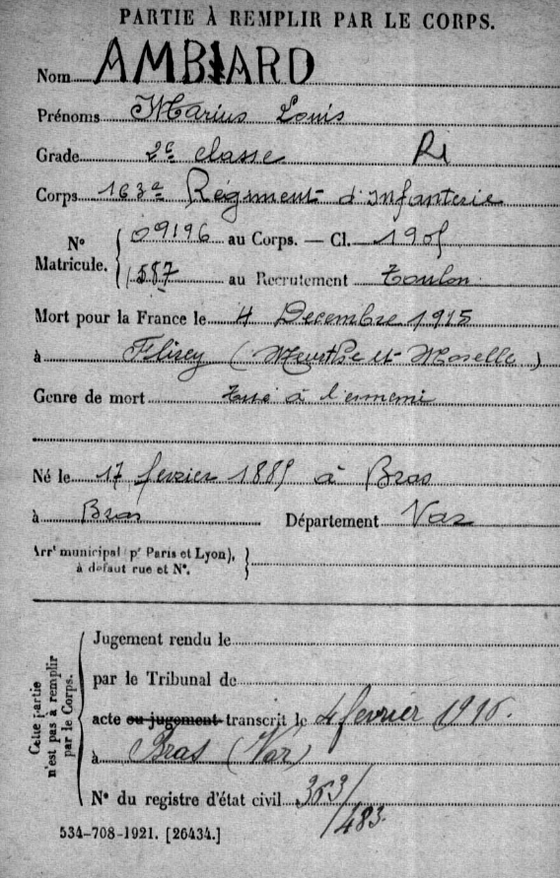 PARTIE À REMPLIR PAR LE CORPS.
Nom AMBIARD
Prénoms Marius Louis
Grade 2e classe RI
Corps 163e Régiment d'Infanterie
N° Matricule. { 09196 au Corps. — Cl. 1909
1587 au Recrutement Toulon
Mort pour la France le 4 Decembre 1915
à Flirey (Meurthe et Moselle)
Genre de mort tué à l'ennemi
Né le 17 fevrier 1889 à Bras
à Bras Département Var
Arrt municipal (pr Paris et Lyon),
à défaut rue et N°.
Cette partie
n'est pas à remplir
par le Corps.
Jugement rendu le
par le Tribunal de
acte ou jugement transcrit le 4 fevrier 1916.
à Bras (Var)
N° du registre d'état civil 363/
483.
534-708-1921. [26434.]